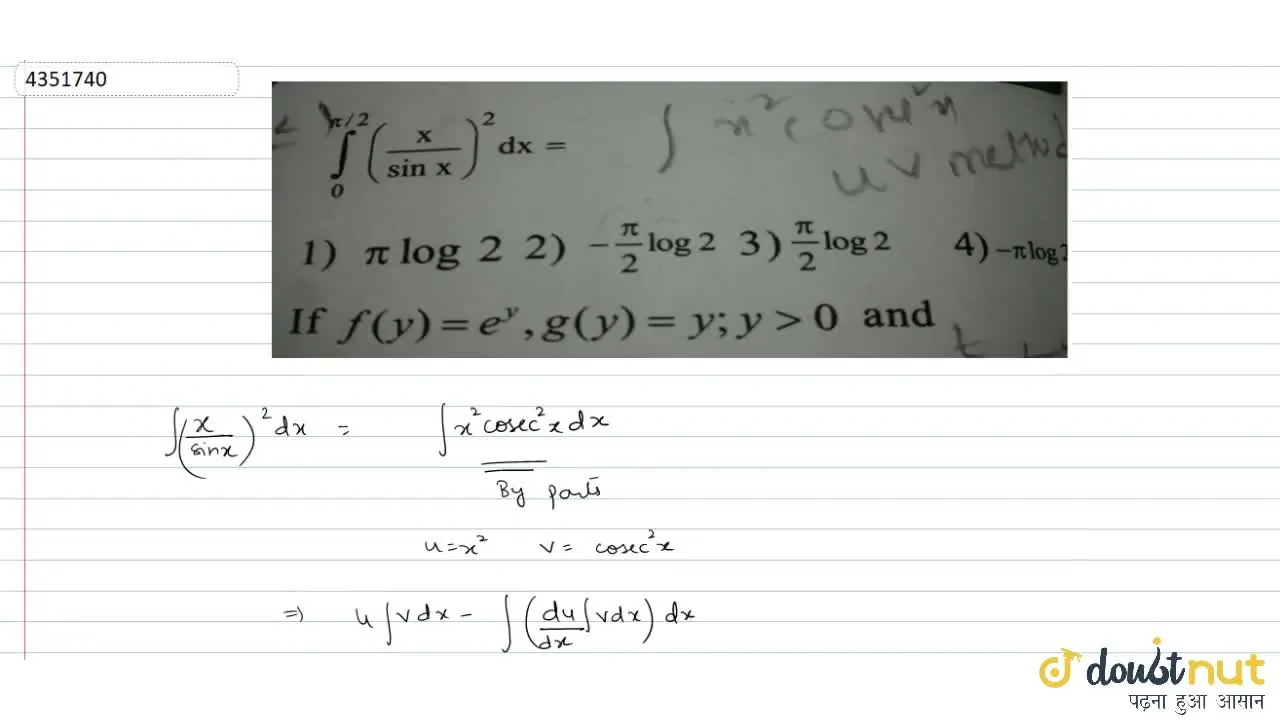 4351740
∫₀^(π/2) (x/sin x)² dx = ∫ x² cosec² x
u v method
1) π log 2 2) -π/2 log 2 3) π/2 log 2 4) -π log 2
If f(y) = e^y, g(y) = y; y > 0 and
∫(x/sinx)² dx = ∫x² cosec² x dx
By parts
u = x² v = cosec² x
⇒ u ∫v dx - ∫(du/dx ∫v dx) dx
doubtnut
पढ़ना हुआ आसान